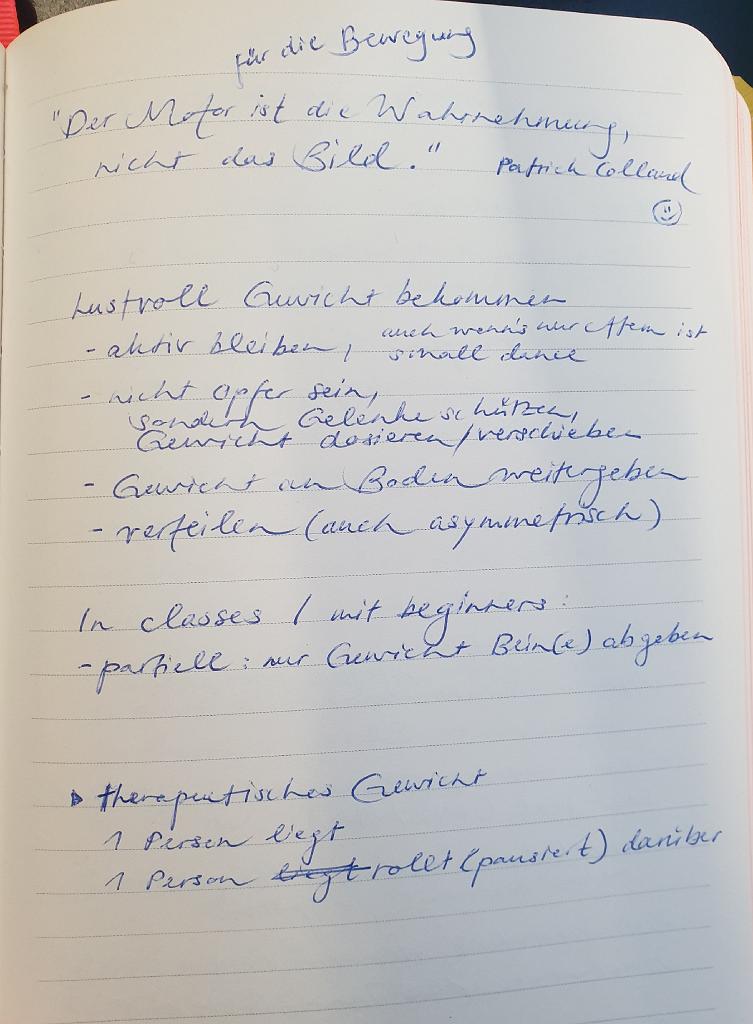 für die Bewegung
"Der Motor ist die Wahrnehmung,
nicht das Bild." Patrick Collaud
Lustvoll Gewicht bekommen
- aktiv bleiben, auch wenn's nur Atem ist
small dance
- nicht Opfer sein,
sondern Gelenke schützen,
Gewicht dosieren/verschieben
- Gewicht an Boden weitergeben
- verteilen (auch asymmetrisch)
In classes / mit beginners:
- partiell: nur Gewicht Bein(e) abgeben
therapeutisches Gewicht
1 Person liegt
1 Person liegt rollt (pausiert) darüber